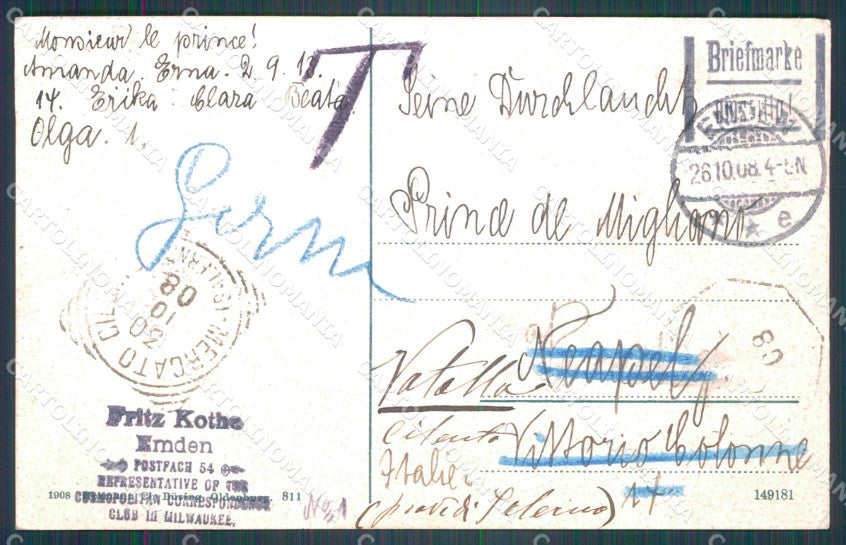 Monsieur le prince!
Amanda. Erna. 2. 9. 1
14. Erika. Clara Beata.
Olga. 1.
T
Briefmarke
Seine Durchlaucht
26.10.08. 4-5N
* e
Prince de Migliano
MERCATO CIL
30
10
08
08
Neapel
Vatolla
Cilento
Vittorio Colonna
Italien
17
(prov. di Salerno)
Fritz Kothe
Emden
POSTFACH 54
REPRESENTATIVE OF THE
COSMOPOLITAN CORRESPONDENCE
CLUB in MILWAUKEE.
1908 Oldenburg. 811
No. 1
149181
CARTOLINOMANIA